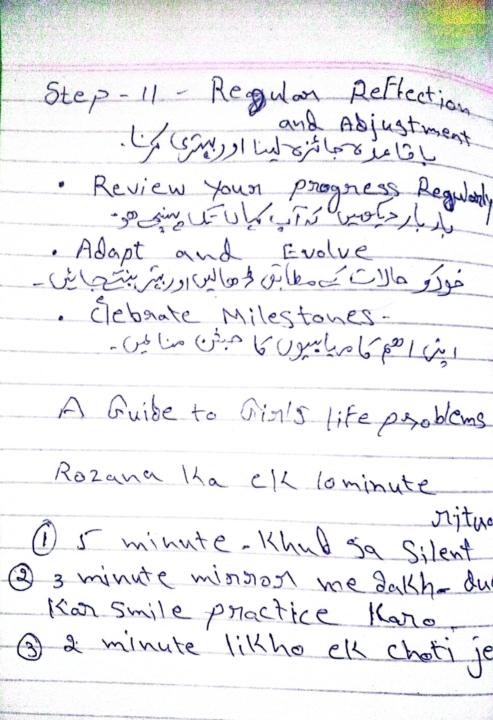 Step - 11 - Regular Reflection
and Adjustment
باقاعدہ جائزہ لینا اور بہتری کرنا.
• Review Your progress Regularly
بار بار دیکھیں کہ آپ کہاں تک پہنچے ہو-
• Adapt and Evolve
خود کو حالات کے مطابق ڈھالیں اور بہتر بنتے جائیں-
• Celebrate Milestones -
اپنی اہم کامیابیوں کا جشن منائیں-
A Guibe to Girl's life problems
Rozana Ka ek 10 minute
① 5 minute - Khud sa Silent
② 3 minute mirror me dakh-
Kar smile practice Karo.
③ 2 minute likho ek choti